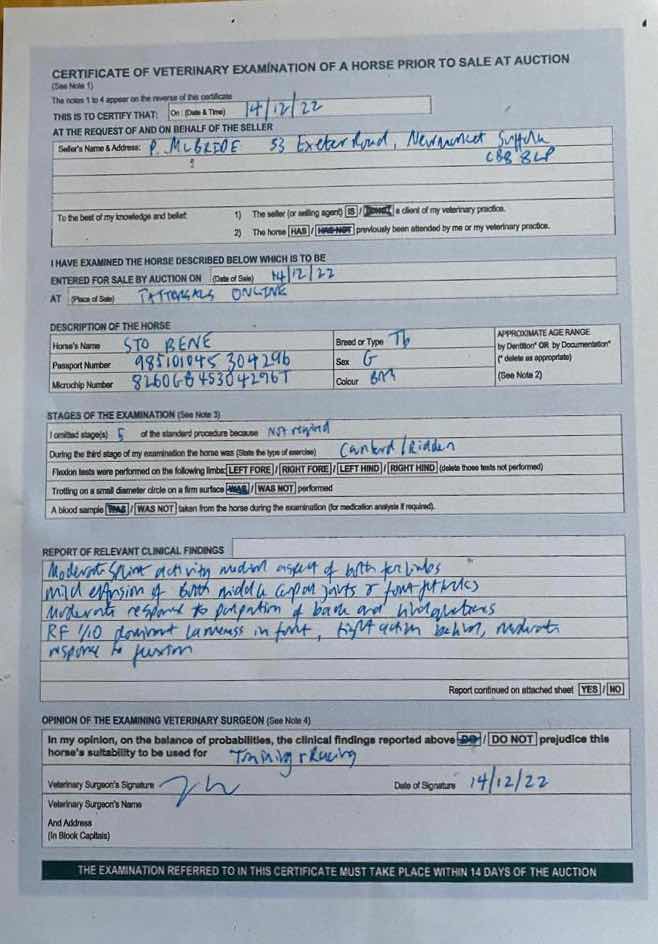 CERTIFICATE OF VETERINARY EXAMINATION OF A HORSE PRIOR TO SALE AT AUCTION
(See Note 1)
The notes 1 to 4 appear on the reverse of this certificate
THIS IS TO CERTIFY THAT: On (Date & Time) 14/12/22
AT THE REQUEST OF AND ON BEHALF OF THE SELLER
Seller's Name & Address: P. McBRIDE 53 Exeter Road, Newmarket Suffolk
CB8 8LP
To the best of my knowledge and belief: 1) The seller (or selling agent) IS / IS NOT a client of my veterinary practice.
2) The horse HAS / HAS NOT previously been attended by me or my veterinary practice.
I HAVE EXAMINED THE HORSE DESCRIBED BELOW WHICH IS TO BE
ENTERED FOR SALE BY AUCTION ON (Date of Sale) 14/12/22
AT (Place of Sale) TATTERSALS ONLINE
DESCRIPTION OF THE HORSE
Horse's Name STO BENE Breed or Type Tb APPROXIMATE AGE RANGE
by Dentition* OR by Documentation*
Passport Number 985101045 304296 Sex G (* delete as appropriate)
Microchip Number 8260GB45304296T Colour BAY (See Note 2)
STAGES OF THE EXAMINATION (See Note 3)
I omitted stage(s) 5 of the standard procedure because Not required
During the third stage of my examination the horse was (State the type of exercise) Cantered / Ridden
Flexion tests were performed on the following limbs: LEFT FORE / RIGHT FORE / LEFT HIND / RIGHT HIND (delete those tests not performed)
Trotting on a small diameter circle on a firm surface WAS / WAS NOT performed
A blood sample WAS / WAS NOT taken from the horse during the examination (for medication analysis if required).
REPORT OF RELEVANT CLINICAL FINDINGS
Moderate Splint activity medial aspect of both forelimbs
mild effusion of both middle carpal joints & front fetlocks
Moderate response to palpation of back and hindquarters
RF 1/10 dominant lameness in front, tight action behind, moderate
response to flexion
Report continued on attached sheet YES / NO
OPINION OF THE EXAMINING VETERINARY SURGEON (See Note 4)
In my opinion, on the balance of probabilities, the clinical findings reported above DO / DO NOT prejudice this
horse's suitability to be used for Training & Racing
Veterinary Surgeon's Signature Date of Signature 14/12/22
Veterinary Surgeon's Name
And Address
(in Block Capitals)
THE EXAMINATION REFERRED TO IN THIS CERTIFICATE MUST TAKE PLACE WITHIN 14 DAYS OF THE AUCTION